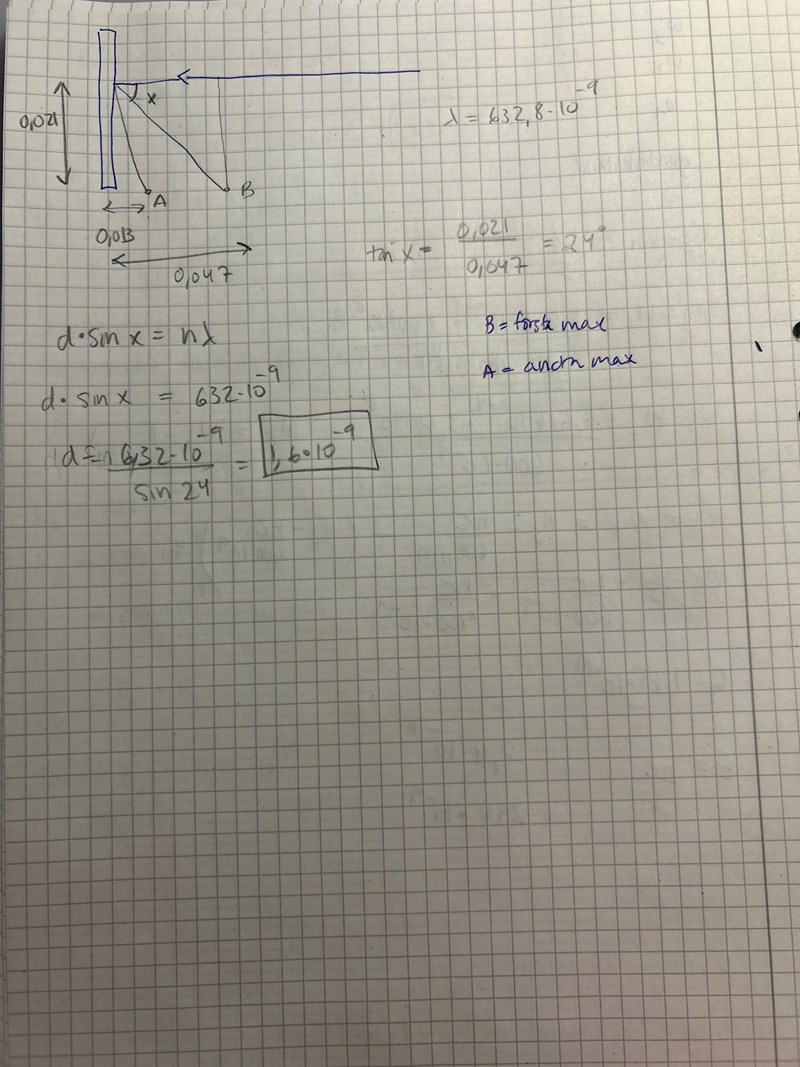 x
0,021
λ = 632,8·10⁻⁹
A
B
0,013
0,047
tan x = 0,021 / 0,047 = 24°
B = första max
A = andra max
d·sin x = nλ
d·sin x = 632·10⁻⁹
d = 632·10⁻⁹ / sin 24 = 1,6·10⁻⁹